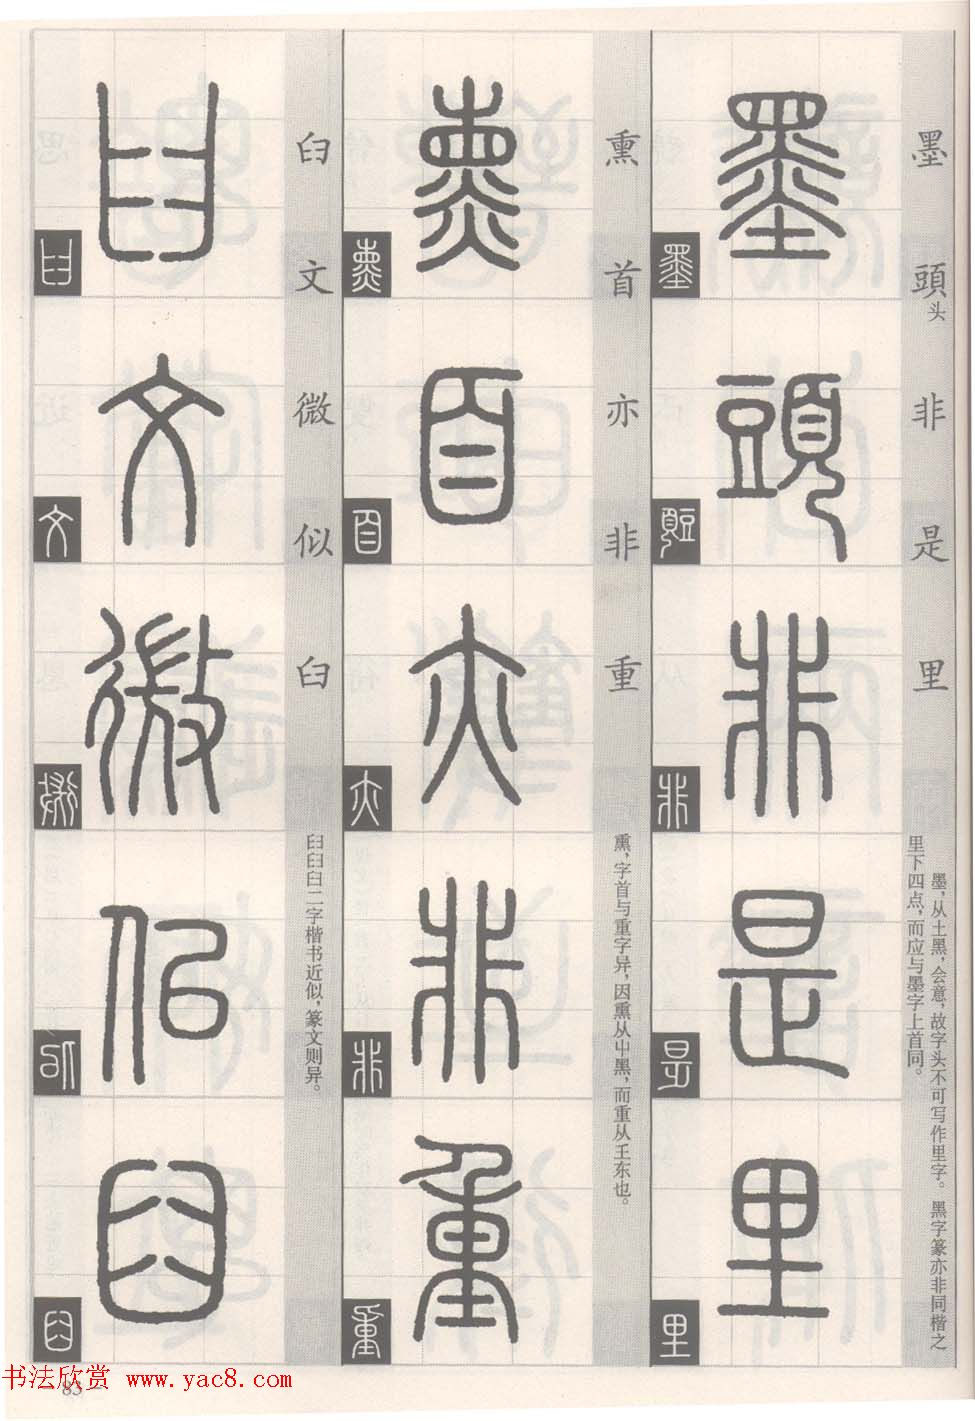 墨頭非是里
头
墨，从土黑，会意，故字头不可写作里字。黑字篆亦非同楷之
里下四点，而应与墨字上首同。
熏首亦非重
熏，字首与重字异，因熏从屮黑，而重从王东也。
臼文微似臼
臼臼臼二字楷书近似，篆文则异。
书法欣赏 www.yac8.com
83